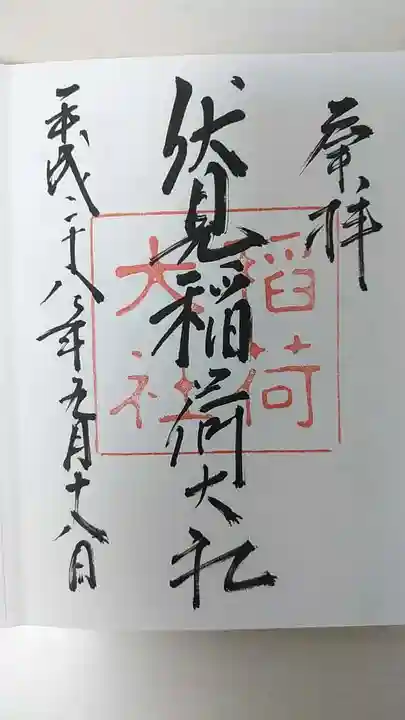 奉拝
伏見稲荷大社
稲荷
大社
平成二十八年九月十八日